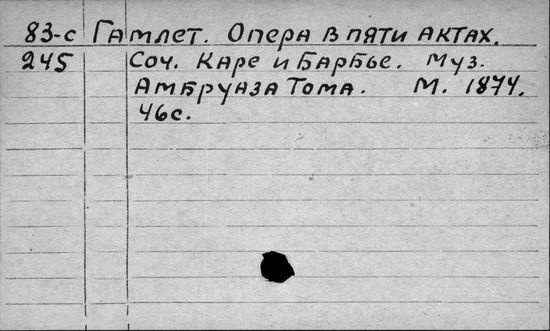 83-с Гамлет. Опера в пяти актах.
245 Соч. Каре и Барбье. Муз.
Амбруаза Тома. М. 1874.
46с.